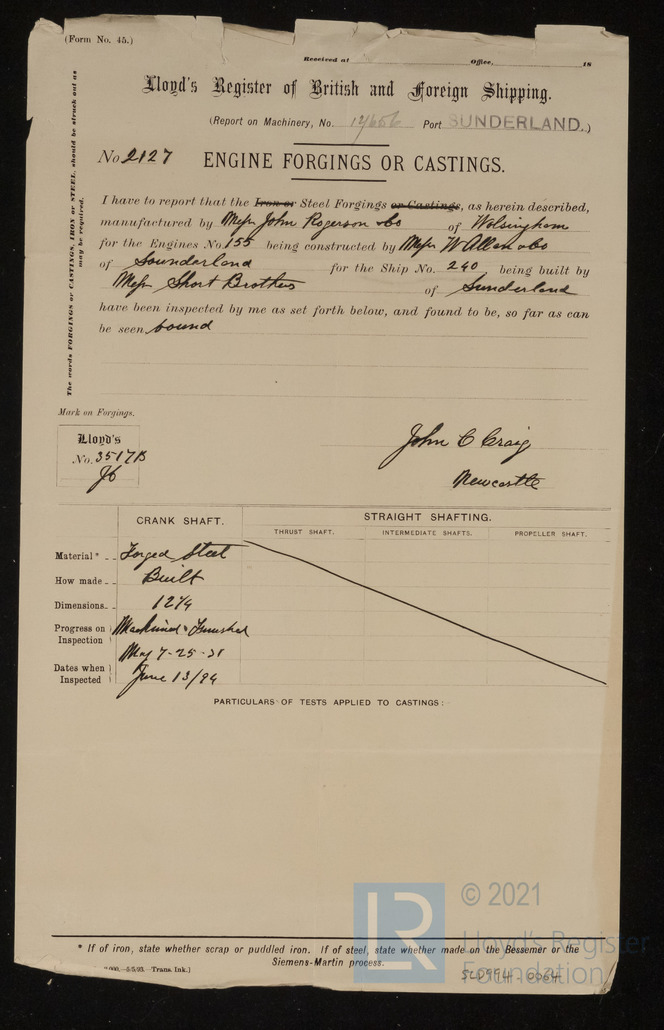 (Form No. 45.)
Received at Office, 18
Lloyd's Register of British and Foreign Shipping.
(Report on Machinery, No. 12606 Port SUNDERLAND.)
No 2127 ENGINE FORGINGS OR CASTINGS.
The words FORGINGS or CASTINGS, IRON or STEEL, should be struck out as
may be required.
I have to report that the Iron or Steel Forgings or Castings, as herein described,
manufactured by Messrs John Rogerson & Co of Wolsingham
for the Engines No. 155 being constructed by Messrs W Allan & Co
of Sounderland for the Ship No. 240 being built by
Messrs Short Brothers of Sunderland
have been inspected by me as set forth below, and found to be, so far as can
be seen sound
Mark on Forgings.
Lloyd's
No. 3517B
JC
John C Craig
Newcastle
CRANK SHAFT. STRAIGHT SHAFTING.
THRUST SHAFT. INTERMEDIATE SHAFTS. PROPELLER SHAFT.
Material* Forged Steel
How made Built
Dimensions 12¼
Progress on Inspection Machined & Finished
Dates when Inspected May 7-25-31
June 13/94
PARTICULARS OF TESTS APPLIED TO CASTINGS:
© 2021
LR
Lloyd's Register
Foundation
* If of iron, state whether scrap or puddled iron. If of steel, state whether made on the Bessemer or the
Siemens-Martin process.
000.—5/5/93.—Trans. Ink.)
SLD994-0064